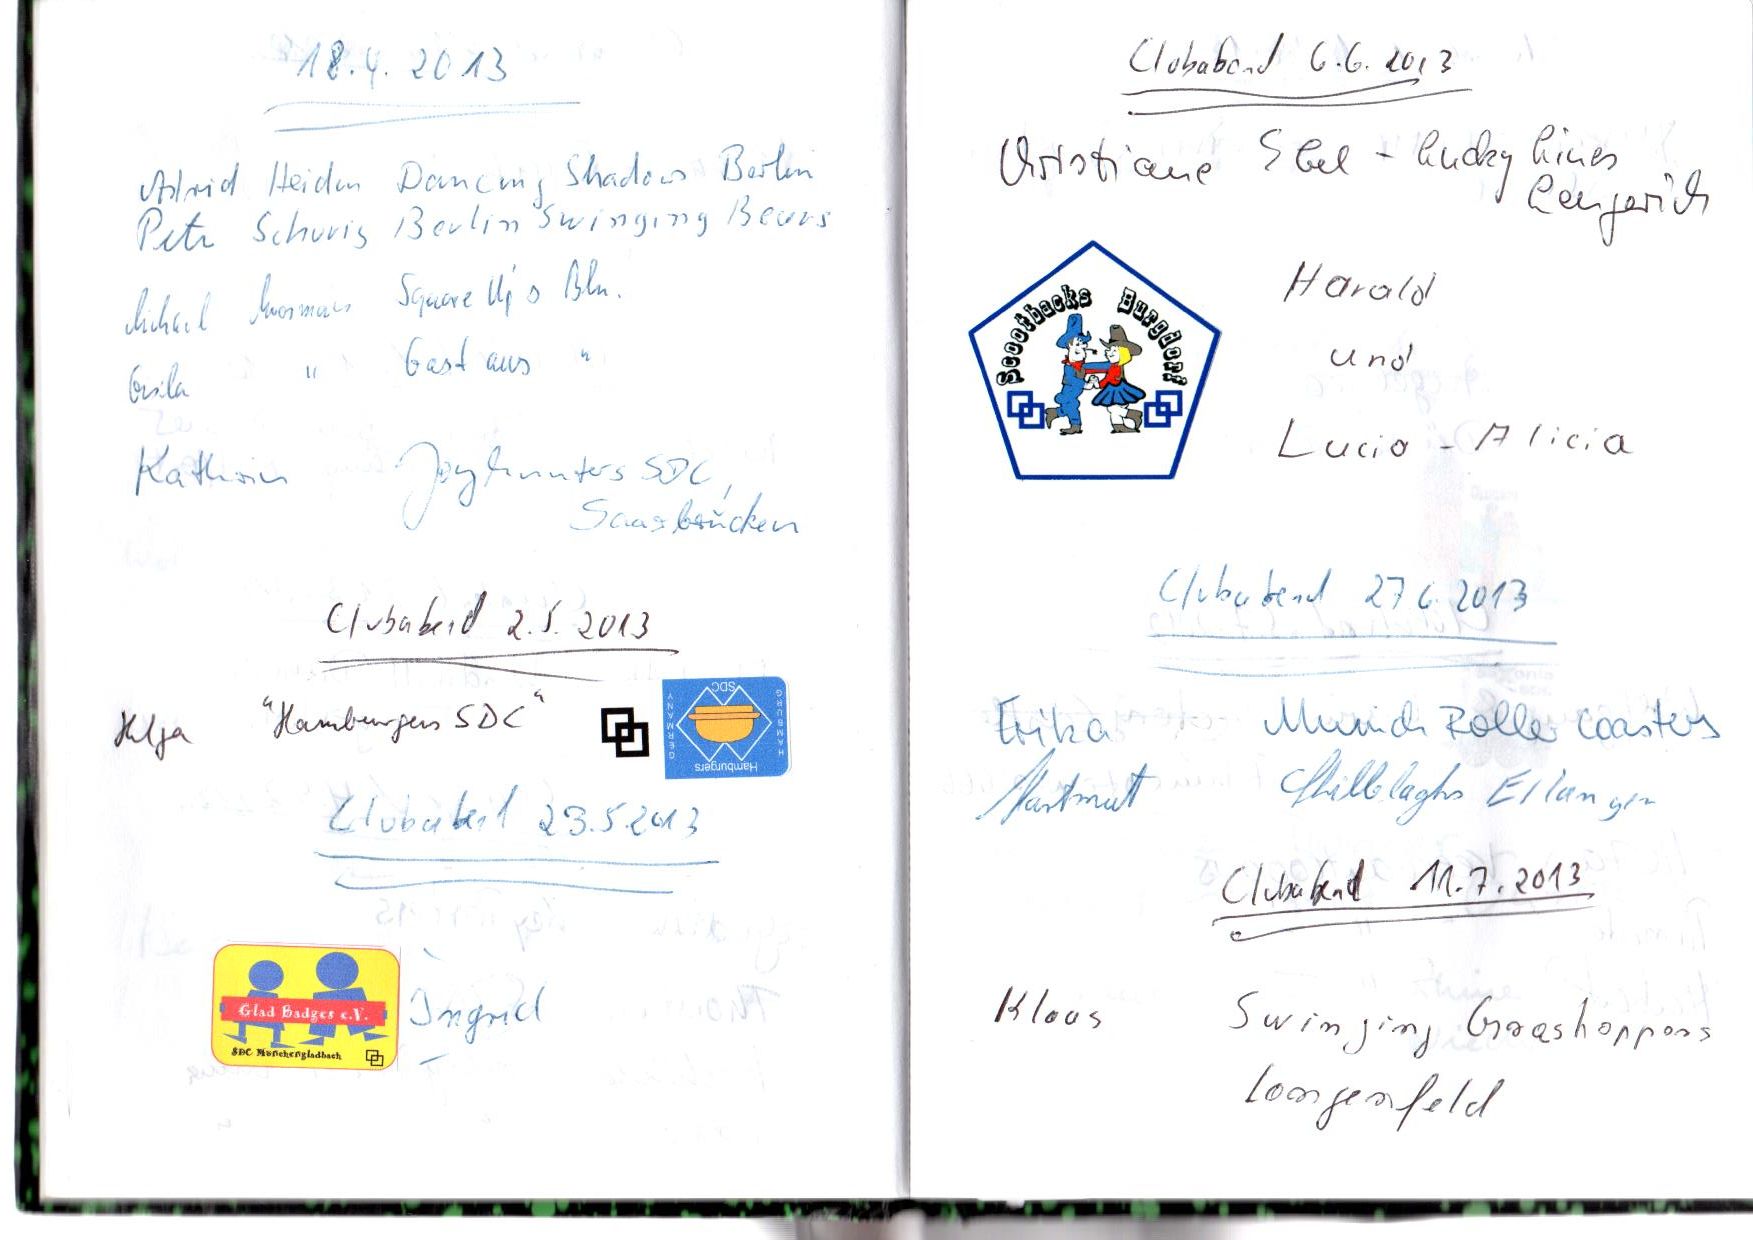 18.4.2013
Astrid Heiden Dancing Shadows Berlin
Petr Schurig Berlin Swinging Bears
Michael Square Up's Bln.
Gisela " Gast aus "
Kathrin Joyhunters SDC,
Saarbrücken
Clubabend 2.5.2013
Helga "Hamburgers SDC"
SDC
HAMBURG
GERMANY
Hamburgers
Clubabend 23.5.2013
Glad Badges e.V.
SDC Mönchengladbach
Ingrid
Clubabend 6.6.2013
Christiane - Lucky Lines
Lengerich
Scootbacks Burgdorf
Harald
und
Lucia - Alicia
Clubabend 27.6.2013
Erika Munich Roller Coasters
Hartmut Erlangen
Clubabend 11.7.2013
Klaus Swinging Grashoppers
Langenfeld